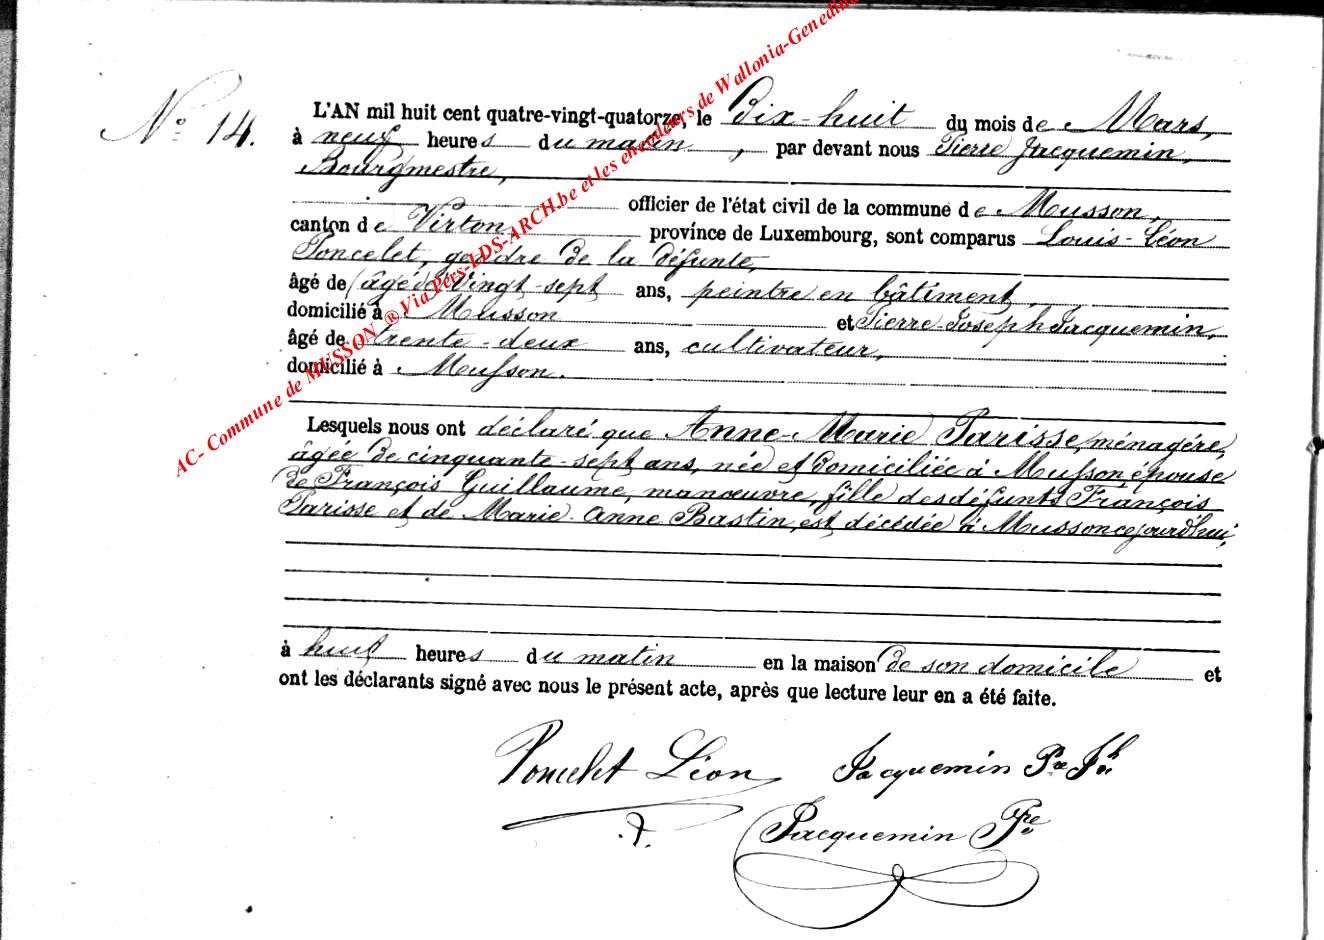 N° 14.
L'AN mil huit cent quatre-vingt-quatorze, le Dix-huit du mois de Mars,
à neuf heures du matin, par devant nous Pierre Jacquemin,
Bourgmestre,
officier de l'état civil de la commune de Musson,
canton de Virton, province de Luxembourg, sont comparus Louis-Léon
Poncelet, gendre de la défunte,
âgé de (âgé de) Vingt-sept ans, peintre en bâtiment,
domicilié à Musson et Pierre-Joseph Jacquemin,
âgé de trente-deux ans, cultivateur,
domicilié à Musson.
Lesquels nous ont déclaré que Anne-Marie Parisse, ménagère,
âgée de cinquante-sept ans, née et domiciliée à Musson, épouse
de François Guillaume, manœuvre, fille des défunts François
Parisse et de Marie-Anne Bastin, est décédée à Musson cejourd'hui,
à huit heures du matin en la maison de son domicile et
ont les déclarants signé avec nous le présent acte, après que lecture leur en a été faite.
Poncelet Léon Jacquemin Pre Jh
Jacquemin Pre
AC- Commune de MUSSON ® Via Pers-LDS-ARCH.be et les encodeurs de Wallonia-Genedina